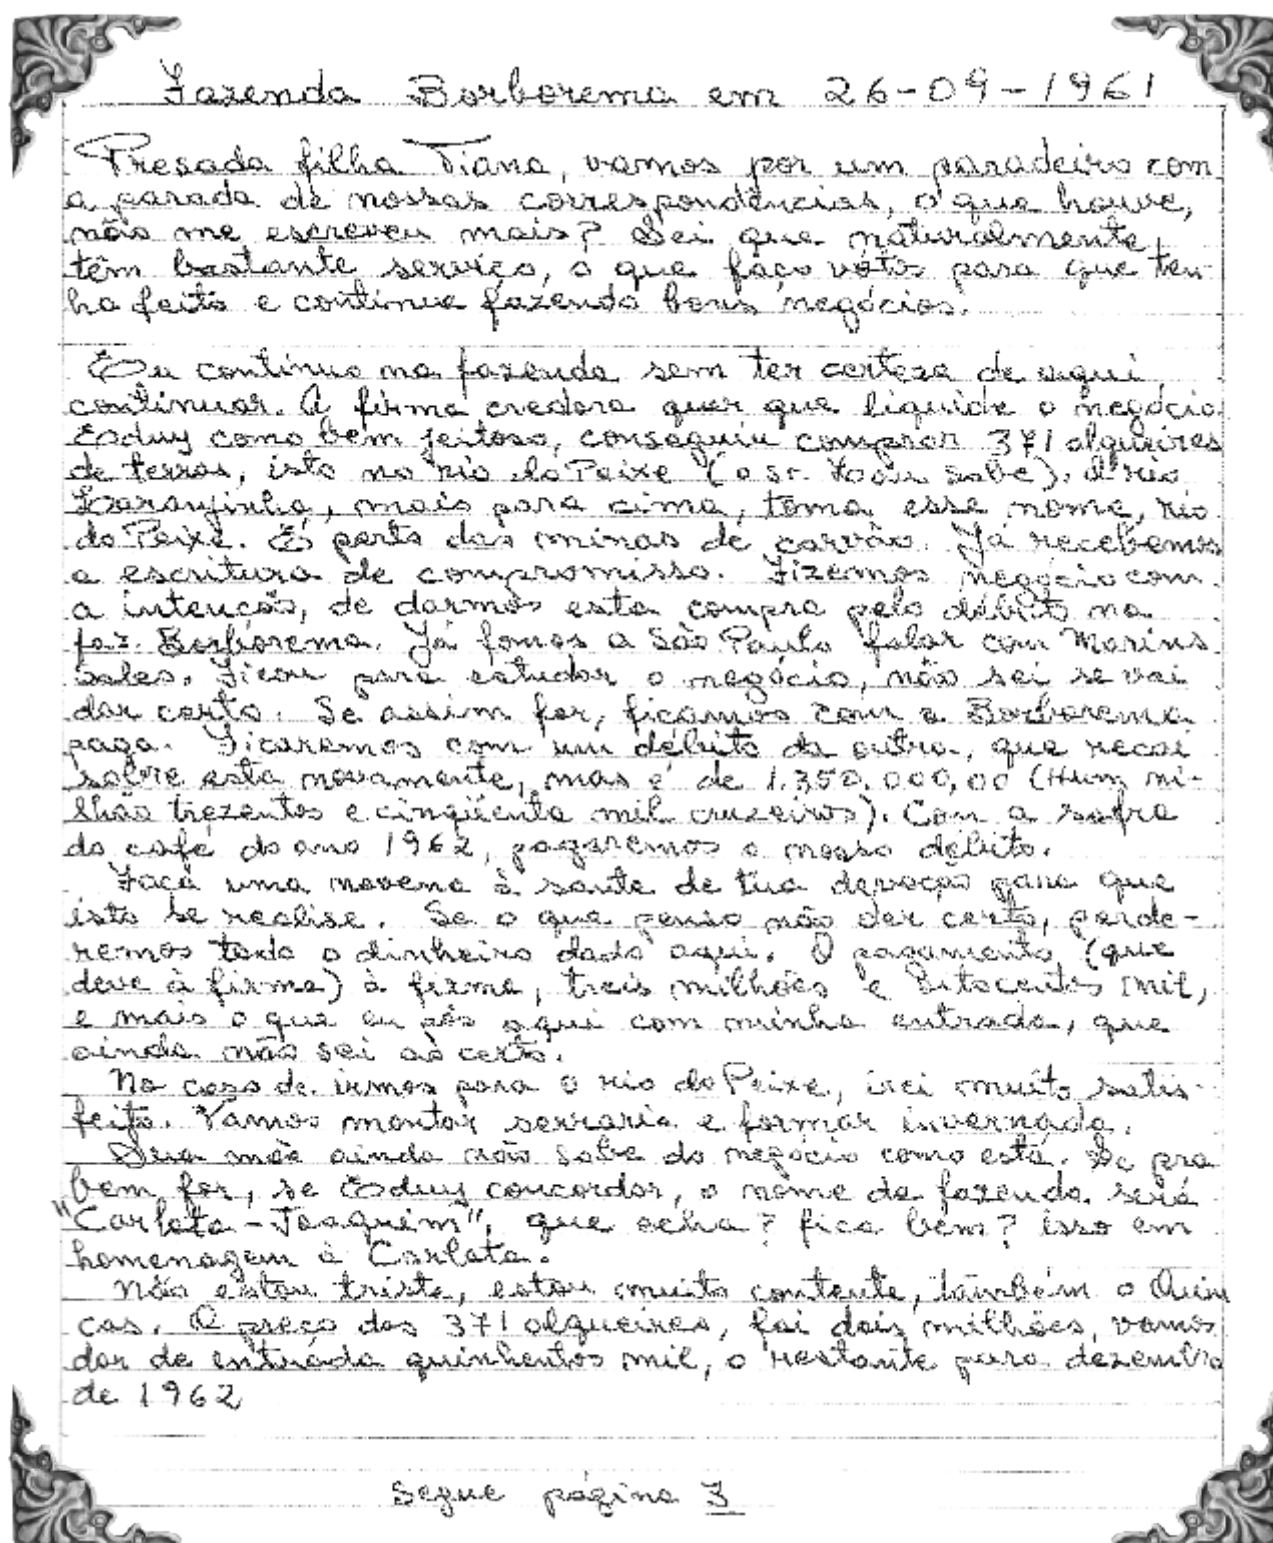 Fazenda Borborema em 26-09-1961
Presada filha Tiana, vamos por um paradeiro com
a parada de nossas correspondências, o que houve,
não me escreveu mais? Sei que naturalmente,
têm bastante serviço, o que faço vótos para que ten-
ha feito e continue fazendo bons negócios.
Eu continuo na fazenda sem ter certeza de aqui
continuar. A firma credora quer que liquide o negócio.
Eduy como bem jeitoso, conseguiu comprar 371 alqueires
de terras, isto no rio do Peixe (o sr. sabe). O rio
Laranjinha, mais para cima, toma esse nome, rio
do Peixe. É perto das minas de carvão. Já recebemos
a escritura de compromisso. Fizemos negócio com
a intenção, de darmos esta compra pelo débito na
faz. Borborema. Já fomos a São Paulo falar com Marins
Sales. Ficou para estudar o negócio, não sei se vai
dar certo. Se assim for, ficamos com a Borborema
paga. Ficaremos com um débito da outra, que recai
sobre esta novamente, mas é de 1.350.000,00 (Hum mi-
lhão trezentos e cinqüenta mil cruzeiros). Com a safra
do café do ano 1962, pagaremos o nosso débito.
Faça uma novena à santa de tua devoção para que
isto se realise. Se o que penso não der certo, perde-
remos todo o dinheiro dado aqui. O pagamento (que
deve à firma) à firma, treis milhões e oitocentos mil,
e mais o que eu pós aqui com minha entrada, que
ainda não sei ao certo.
No caso de irmos para o rio do Peixe, irei muito satis-
feito. Vamos montar serraria e formar invernada.
Sua mãe ainda não sabe do negócio como está. Se pra
bem for, se Eduy concordar, o nome da fazenda será
"Carlota-Joaquim", que acha? fica bem? isso em
homenagem à Carlota.
Não estou triste, estou muito contente, também o Quin
cas. O preço dos 371 alqueires, foi dois milhões, vamos
dar de entrada quinhentos mil, o restante para dezembro
de 1962
Segue página 3